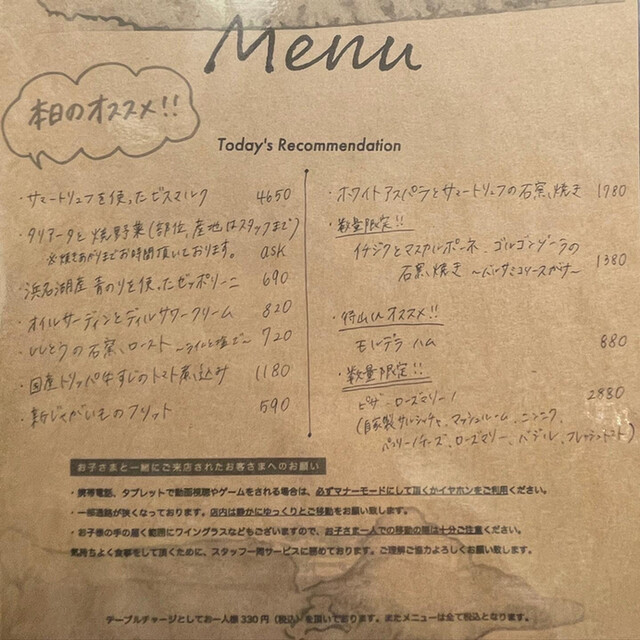 Menu
本日のオススメ!!
Today's Recommendation
・サマートリュフを使ったビスマルク 4650
・タリアータと焼野菜(部位、産地はスタッフまで)
※焼きあがりまでお時間頂いております。 ask
・浜名湖産 青のりを使ったゼッポリーニ 690
・オイルサーディンとディルサワークリーム 820
・ししとうの石窯ロースト 〜ライムと塩で〜 720
・国産トリッパ牛すじのトマト煮込み 1180
・新じゃがいものフリット 590
・ホワイトアスパラとサマートリュフの石窯焼き 1780
・数量限定!!
イチジクとマスカルポーネ、ゴルゴンゾーラの
石窯焼き 〜バルサミコソースがけ〜 1380
・オススメ!!
モルタデラ ハム 880
・数量限定!!
ピザ ローズマリーノ 2880
(自家製サルシッチャ、マッシュルーム、ニンニク、
パッリーノチーズ、ローズマリー、バジル、フレッシュトマト)
お子さまと一緒にご来店されたお客さまへのお願い
・携帯電話、タブレットで動画視聴やゲームをされる場合は、必ずマナーモードにして頂くかイヤホンをご利用ください。
・一部通路が狭くなっております。店内は静かにゆっくりとご移動をお願い致します。
・お子様の手の届く範囲にワイングラスなどもございますので、お子さま一人での移動の際は十分ご注意ください。
気持ちよく食事をして頂くために、スタッフ一同サービスに務めております。ご理解ご協力よろしくお願い致します。
テーブルチャージとしてお一人様330円(税込)を頂いております。またメニューは全て税込となります。